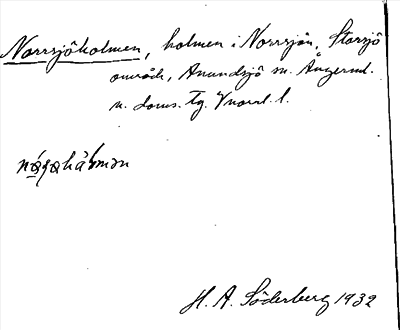 Norrsjöholmen, holmen i Norrsjön, Storsjö
område, Anundsjö sn. Ångerml.
n. doms. Tg. Vnorrl. l.
H. A. Söderberg 1932